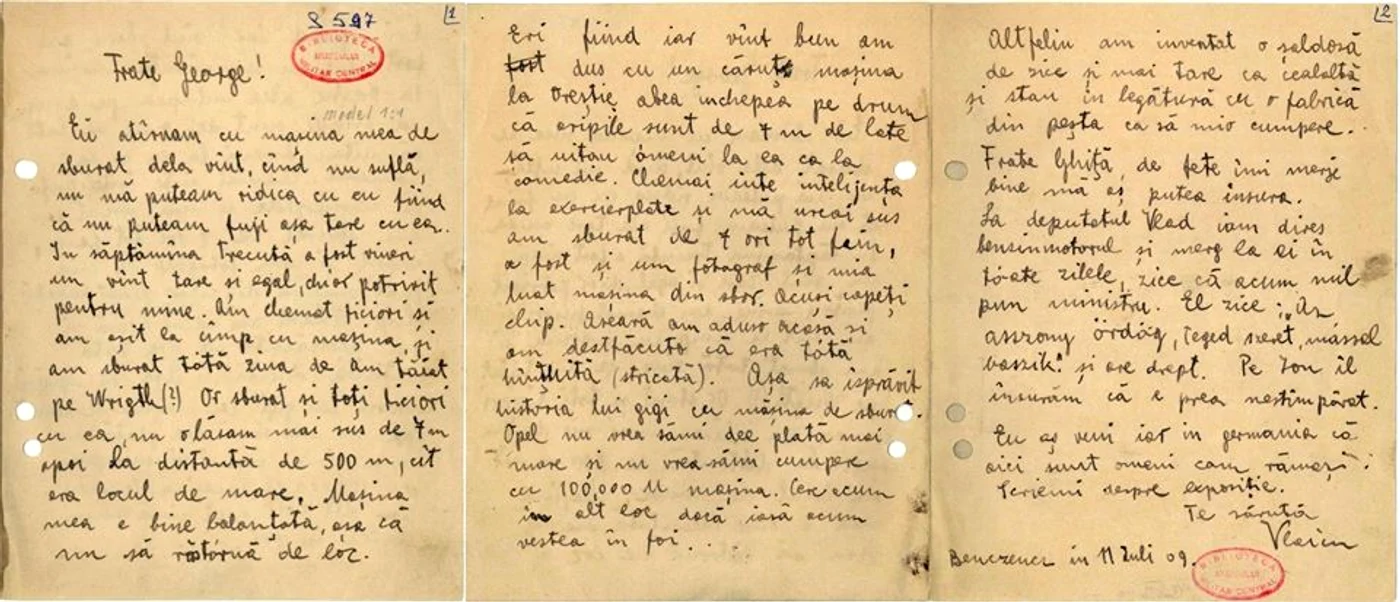 S 597
1
BIBLIOTECA
MILITAR CENTRAL
Frate George!
model 1:1
Eu atîrnam cu mașina mea de
sburat dela vînt, cînd nu suflă,
nu mă puteam ridica cu eu fiind
că nu puteam fuji așa tare cu ea.
In săptămîna trecută a fost vineri
un vînt tare si egal, chiar potrivit
pentru mine. Am chemat ficiori si
am eșit la cîmp cu mașina, și
am sburat tótă ziua de am tăiat
pe Wrigth(?) Or sburat si toți ficiori
cu ea, nu o lăsam mai sus de 7 m
apoi la distanță de 500 m, cît
era locul de mare. Mașina
mea e bine balanțată, așa că
nu să răstórnă de lóc.
Eri fiind iar vînt bun am
fost dus cu un căruts mașina
la Oreștie abea inchepea pe drum
că aripile sunt de 7 m de late
să uitau ómeni la ea ca la
comedie. Chemai inte inteligența
la exercierplatz și mă urcai sus
am sburat de 7 ori tot fain,
a fost și um fótograf si mia
luat mașina din sbor. Acuși capeți
chip. Aseară am aduso acasă si
am destfăcuto că era tótă
hinthită (stricată). Așa sa isprăvit
historia lui gigi cu mașina de sburat.
Opel nu vrea sămi dee plată mai
mare și nu vrea sămi cumpere
cu 100,000 M mașina. Cerc acum
in alt loc dacă iasă acum
vestea în foi...
2
Altfeliu am inventat o
de zice și mai tare ca cealaltă
și stau in legătură cu o fabrică
din peșta ca să mio cumpere.
Frate Ghiță, de fete imi merje
bine mă aș putea insura.
La deputatul Vlad iam dires
benzinmotorul și merg la ei în
tóate zilele, zice că acum mil
pun ministru. El zice: „Az
asszony ördög, téged szeret, mással
baszik." și are drept. Pe Ion il
insurăm că e prea nestimpărat.
Eu aș veni iar in germania că
aici sunt omeni cam rămași.
Scriemi despre expoziție.
Te sărută
Vlaicu
Benczencz in 11 Juli 09.
BIBLIOTECA
MILITAR CENTRAL